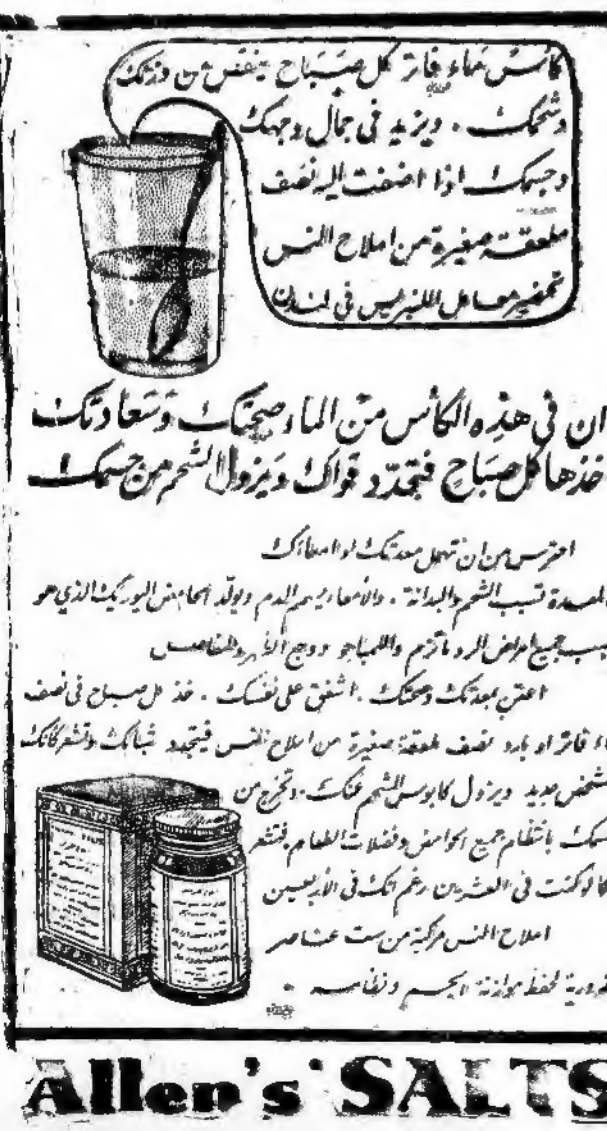 كأس ماء فاتر كل صباح ينقص من وزنك
وشحمك . ويزيد في جمال وجهك
وجسمك اذا اضفت اليه نصف
ملعقة صغيرة من املاح النس
تحضير معامل اللنبريس في لندن
ان في هذه الكأس من الماء صحتك وسعادتك
خذها كل صباح فتجدد قواك ويزول الشحم من جسمك
احترس من ان تهمل معدتك او امعاءك
تسبب الشحم والبدانة . والامعاء الدم ويولد الحامض البوريك الذي هو
جميع امراض الروماتزم واللمباجو ووجع الظهر والمفاصل
اعتن بمعدتك وصحتك . اشفق على نفسك . خذ كل صباح في نصف
فاتر او بارد نصف ملعقة صغيرة من املاح النس فيتجدد شبابك وتشعر كأنك
شخص جديد ويزول كابوس الشحم عنك . وتخرج من
بانتظام جميع الحوامض وفضلات الطعام فتشعر
كما لو كنت في العشرين رغم انك في الأربعين
املاح النس مركبة من ست عناصر
ضرورية لحفظ موازنة الجسم ونظامه
Allen's SALTS